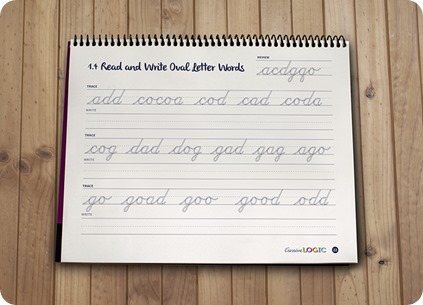 REVIEW
1.4 Read and Write Oval Letter Words
acdgqo
TRACE
add cocoa cod cad coda
WRITE
TRACE
cog dad dog gad gag ago
WRITE
TRACE
go goad goo good odd
WRITE
Cursive LOGIC